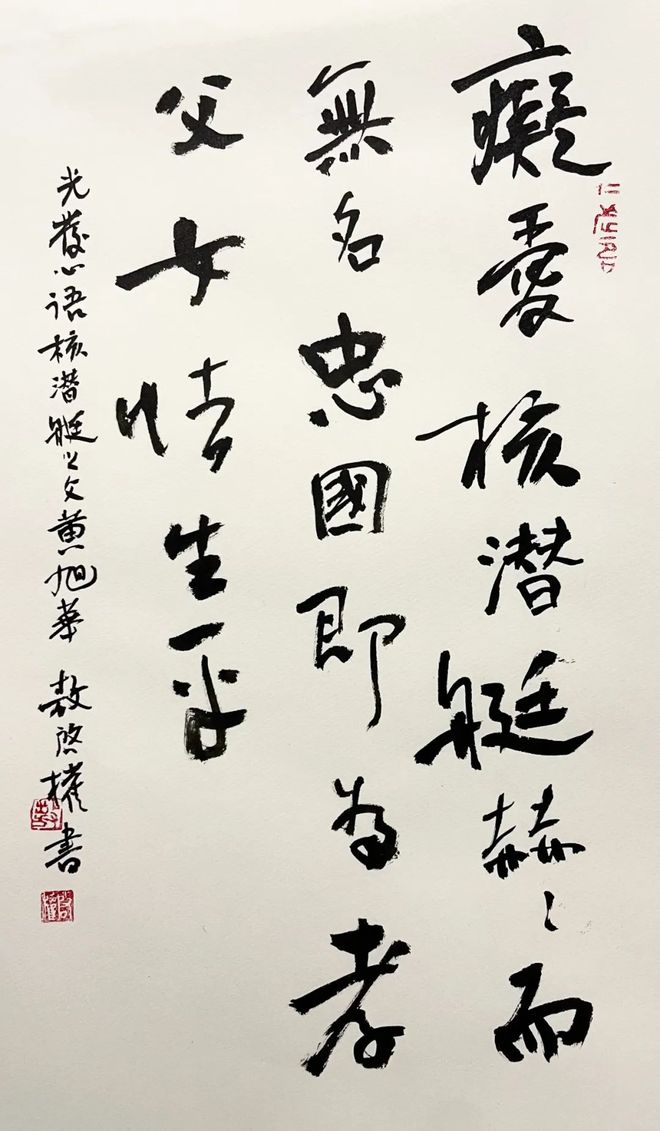 癡愛核潜艇赫〻而
無名忠國即為孝
父女情生平
光蕿心语核潜艇之父黄旭华 敖啓權書